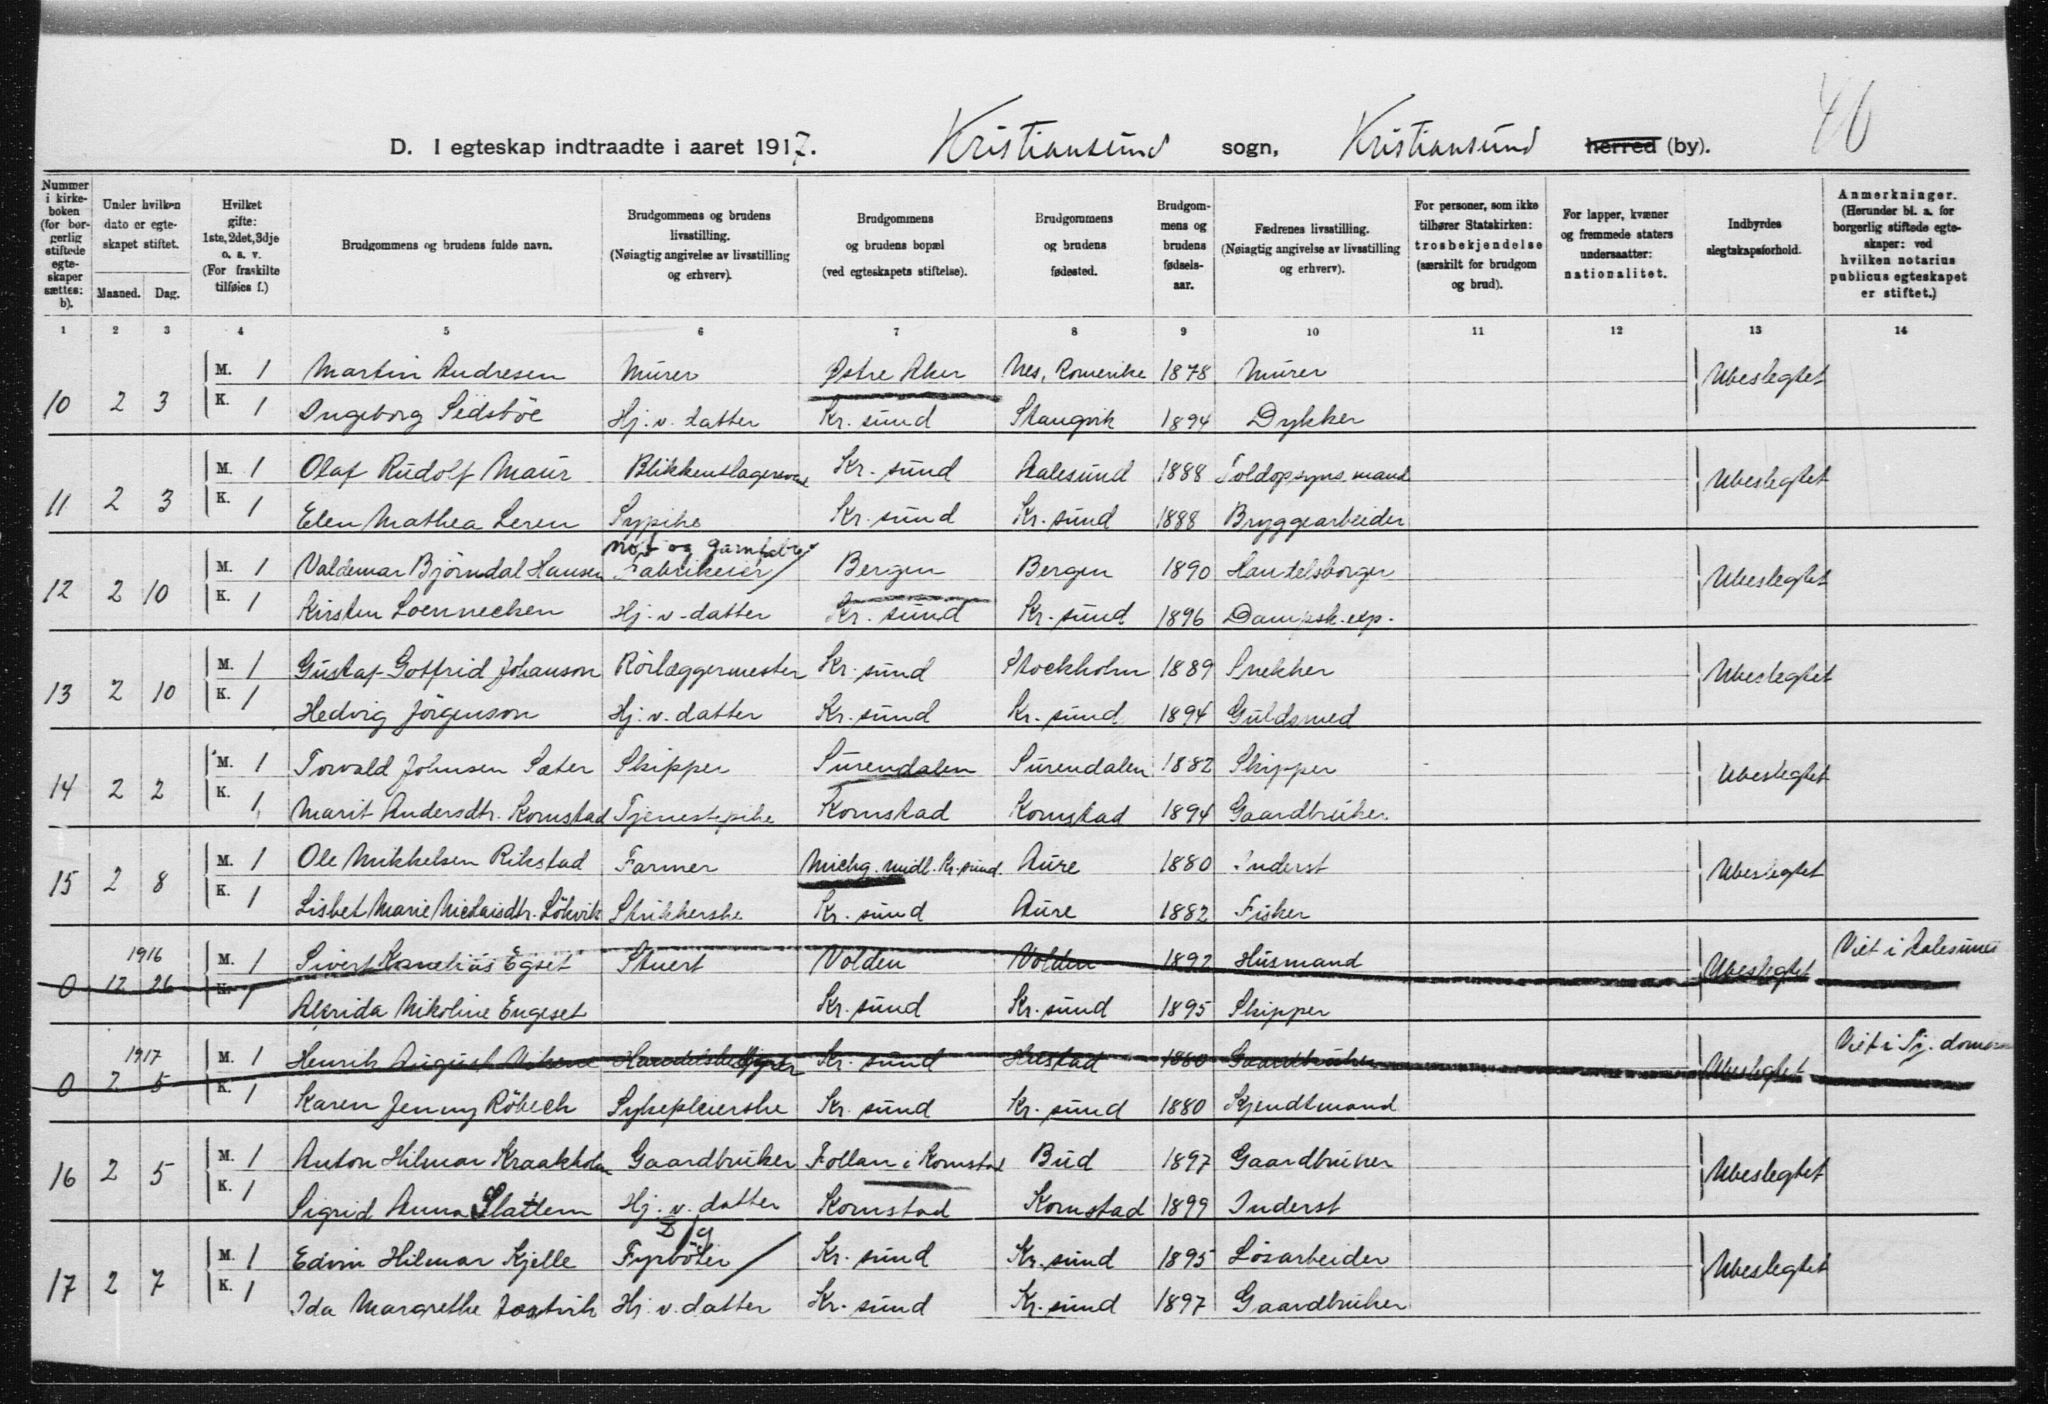 46
D. I egteskap indtraadte i aaret 1917. Kristiansund sogn, Kristiansund herred (by).
Nummer i kirkeboken (for borgerlig stiftede egteskaper sættes: b).
Under hvilken dato er egteskapet stiftet.
Maaned. Dag.
Hvilket gifte: 1ste, 2det, 3dje o. s. v. (For fraskilte tilføies f.)
Brudgommens og brudens fulde navn.
Brudgommens og brudens livsstilling. (Nøiagtig angivelse av livsstilling og erhverv).
Brudgommens og brudens bopæl (ved egteskapets stiftelse).
Brudgommens og brudens fødested.
Brudgommens og brudens fødselsaar.
Fædrenes livsstilling. (Nøiagtig angivelse av livsstilling og erhverv).
For personer, som ikke tilhører Statskirken: trosbekjendelse (særskilt for brudgom og brud).
For lapper, kvæner og fremmede staters undersaatter: nationalitet.
Indbyrdes slegtskapsforhold.
Anmerkninger. (Herunder bl. a. for borgerlig stiftede egteskaper: ved hvilken notarius publicus egteskapet er stiftet.)
1 2 3 4 5 6 7 8 9 10 11 12 13 14
M. 1 Martin Andresen Murer Østre Aker Nes, Romerike 1878 Murer Ubeslegtet
10 2 3
K. 1 Ingeborg Sedsböe Hj. v. datter Kr. sund Stangvik 1894 Dykker
M. 1 Olaf Rudolf Maur Blikkenslagersvend Kr. sund Aalesund 1888 Toldopsyns mand Ubeslegtet
11 2 3
K. 1 Elen Mathea Leren Sypike Kr. sund Kr. sund 1888 Bryggearbeider
not og garn
M. 1 Valdemar Björndal Hansen Fabrikeier Bergen Bergen 1890 Handelsborger Ubeslegtet
12 2 10
K. 1 Kirsten Loennecken Hj. v. datter Kr. sund Kr. sund 1896 Dampsk. exp.
M. 1 Gustaf Gotfrid Johanson Rörlæggermester Kr. sund Stockholm 1889 Snekker Ubeslegtet
13 2 10
K. 1 Hedvig Jörgenson Hj. v. datter Kr. sund Kr. sund 1894 Guldsmed
M. 1 Torvald Johnsen Sæter Skipper Surendalen Surendalen 1882 Skipper Ubeslegtet
14 2 2
K. 1 Marit Andersdtr. Kornstad Tjenestepike Kornstad Kornstad 1894 Gaardbruker
M. 1 Ole Mikkelsen Rikstad Farmer Michg. midl. Kr. sund. Aure 1880 Inderst Ubeslegtet
15 2 8
K. 1 Lisbet Marie Nicolaisdtr. Lökvik Strikkerske Kr. sund Aure 1882 Fisker
1916 M. 1 Sivert Kornelius Egset Stuert Volden Volden 1892 Husmand Ubeslegtet Viet i Aalesund
0 12 26
K. 1 Alfrida Nikoline Engeset Kr. sund Kr. sund 1895 Skipper
1917 M. 1 Henrik August Handelsbetjent Kr. sund Hustad 1880 Gaardbruker Ubeslegtet Viet i
0 2 5
K. 1 Karen Jenny Röbech Sykepleierske Kr. sund Kr. sund 1880 Kjendtmand
M. 1 Anton Hilmar Kraakholm Gaardbruker Follan i Kornstad Bud 1897 Gaardbruker Ubeslegtet
16 2 5
K. 1 Sigrid Anna Slatlem Hj. v. datter Kornstad Kornstad 1899 Inderst
M. 1 Edvin Hilmar Kjelle Fyrböter Kr. sund Kr. sund 1895 Lösarbeider Ubeslegtet
17 2 7
K. 1 Ida Margrethe Hj. v. datter Kr. sund Kr. sund 1897 Gaardbruker